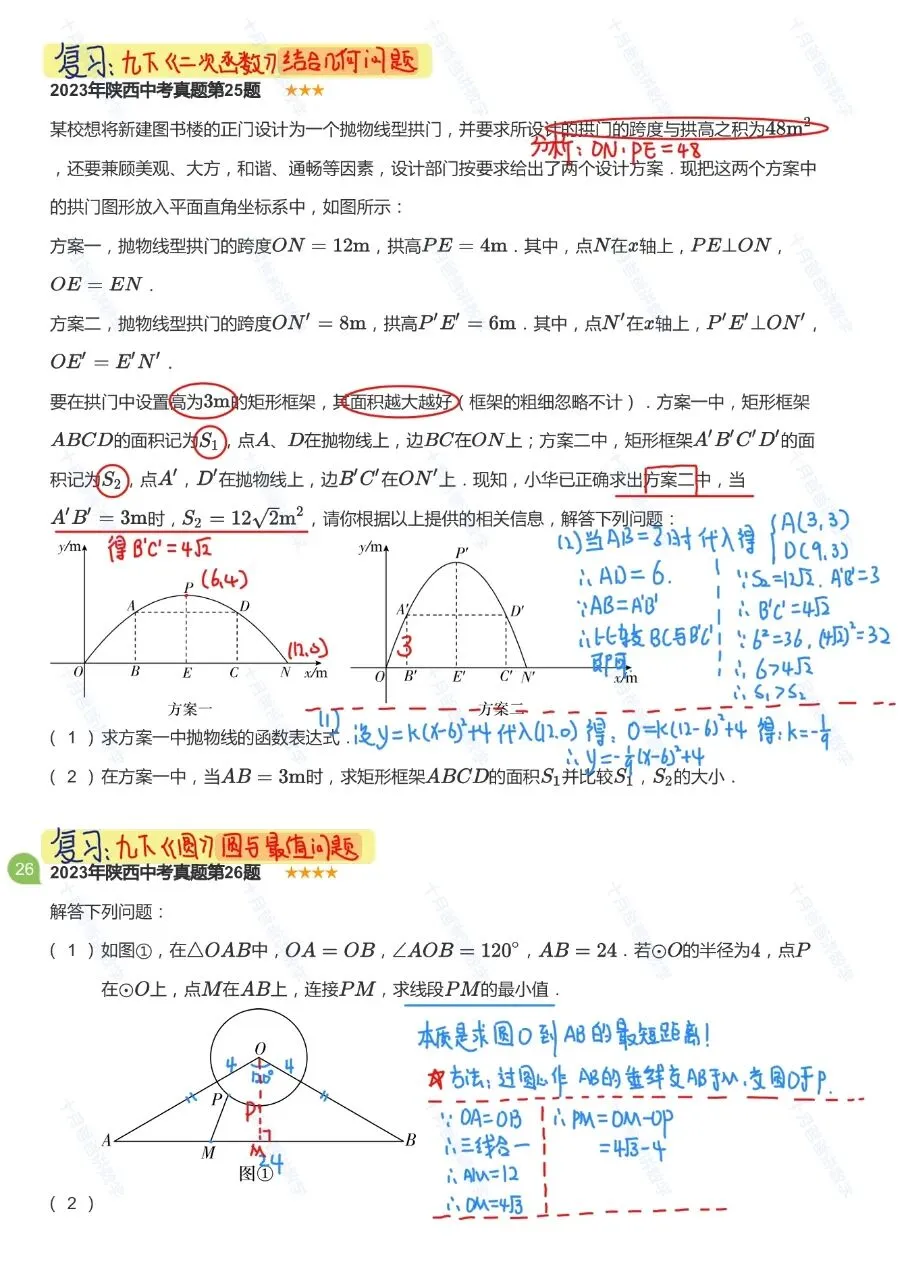 复习：九下《二次函数》结合几何问题
2023年陕西中考真题第25题 ★★★
某校想将新建图书楼的正门设计为一个抛物线型拱门，并要求所设计的拱门的跨度与拱高之积为48m²
分析：ON·PE=48
，还要兼顾美观、大方，和谐、通畅等因素，设计部门按要求给出了两个设计方案．现把这两个方案中
的拱门图形放入平面直角坐标系中，如图所示：
方案一，抛物线型拱门的跨度ON = 12m，拱高PE = 4m．其中，点N在x轴上，PE⊥ON，
OE = EN．
方案二，抛物线型拱门的跨度ON′ = 8m，拱高P′E′ = 6m．其中，点N′在x轴上，P′E′⊥ON′，
OE′ = E′N′．
要在拱门中设置高为3m的矩形框架，其面积越大越好（框架的粗细忽略不计）．方案一中，矩形框架
ABCD的面积记为S₁，点A、D在抛物线上，边BC在ON上；方案二中，矩形框架A′B′C′D′的面
积记为S₂，点A′，D′在抛物线上，边B′C′在ON′上．现知，小华已正确求出方案二中，当
A′B′ = 3m时，S₂ = 12√2m²，请你根据以上提供的相关信息，解答下列问题：
得B′C′=4√2
y/m
P
(6,4)
A
D
(12,0)
O
B
E
C
N
x/m
方案一
y/m
P′
A′
D′
3
O
B′
E′
C′
N′
x/m
方案二
(2)当AB=3时代入得
{A(3,3)
D(9,3)
∴AD=6.
∵AB=A′B′
∴比较BC与B′C′
即可
∵S₂=12√2. A′B′=3
∴B′C′=4√2
∵6²=36, (4√2)²=32
∴6>4√2
∴S₁>S₂
(1)
（1）求方案一中抛物线的函数表达式．设y=k(x-6)²+4代入(12,0)得：0=k(12-6)²+4 得：k=-1/9
∴y=-1/9(x-6)²+4
（2）在方案一中，当AB = 3m时，求矩形框架ABCD的面积S₁并比较S₁，S₂的大小．
复习：九下《圆》圆与最值问题
26
2023年陕西中考真题第26题 ★★★★
解答下列问题：
（1）如图①，在△OAB中，OA = OB，∠AOB = 120°，AB = 24．若⊙O的半径为4，点P
在⊙O上，点M在AB上，连接PM，求线段PM的最小值．
O
4
4
120°
P
P
A
M
M
B
24
图①
本质是求圆O到AB的最短距离！
☆方法：过圆心作AB的垂线交AB于M,交圆O于P.
∵OA=OB
∴三线合一
∴AM=12
∴OM=4√3
∴PM=OM-OP
=4√3-4
（2）
十月爸爸讲数学